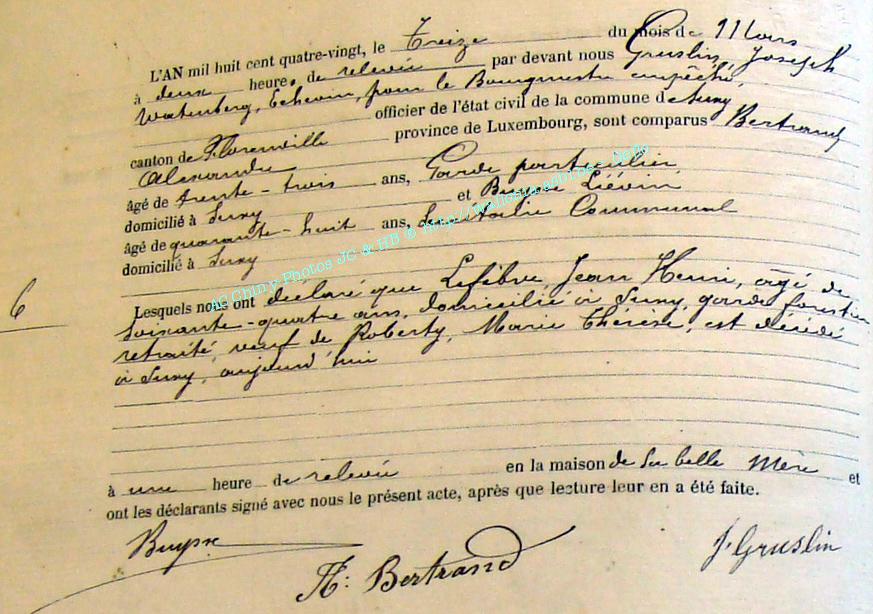 L'AN mil huit cent quatre-vingt, le Treize du mois de Mars
à deux heures de relevée par devant nous Gruslin, Joseph
Watenberg, Echevin, pour le Bourgmestre empêché,
officier de l'état civil de la commune de Suxy
canton de Florenville province de Luxembourg, sont comparus Bertrand
Alexandre
âgé de trente-trois ans, Garde particulier
domicilié à Suxy et Buysse Liévin
âgé de quarante-huit ans, Communal
domicilié à Suxy
AC Chiny Photos JC & HB © http://
6
Lesquels nous ont déclaré que Lefèbvre, Jean Henri, âgé de
soixante-quatre ans, domicilié à Suxy, garde forestier
retraité, veuf de Roberty, Marie Thérèse, est décédé
à Suxy, aujourd'hui
à une heure de relevée en la maison de sa belle mère et
ont les déclarants signé avec nous le présent acte, après que lecture leur en a été faite.
Buysse
A: Bertrand
J. Gruslin